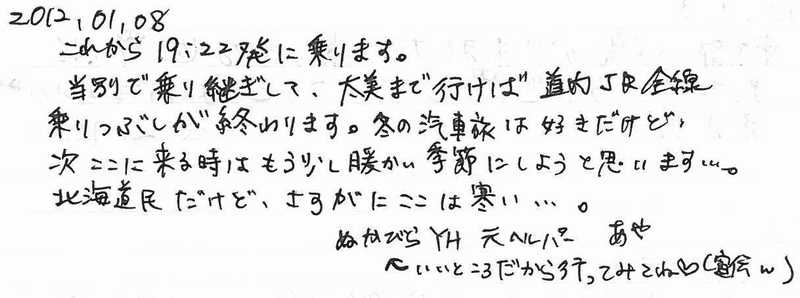 2012,01,08
これから 19:22発に乗ります。
当別で乗り継ぎして、大美まで行けば 道内JR全線
乗りつぶしが終わります。冬の汽車旅は好きだけど、
次ここに来る時はもう少し暖かい季節にしようと思います…。
北海道民だけど、さすがにここは寒い…。
ぬかびらYH 元ヘルパー あや
へいいところだから行ってみてね♡(宣伝w)